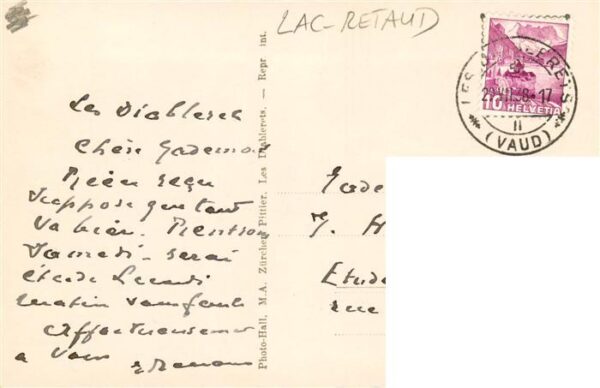 LAC-RETAUD
LES DIABLERETS
29.VII.38-17
II
(VAUD)
10 HELVETIA
Photo-Hall, M.A. Zürcher-Pittier, Les Diablerets. — Repr int.
Les Diablerets
Chère
Rien reçu
suppose que tout
va bien. Rentron
Samedi - serai
étude Lundi
matin
Affectueusement
à vous
Etude
rue